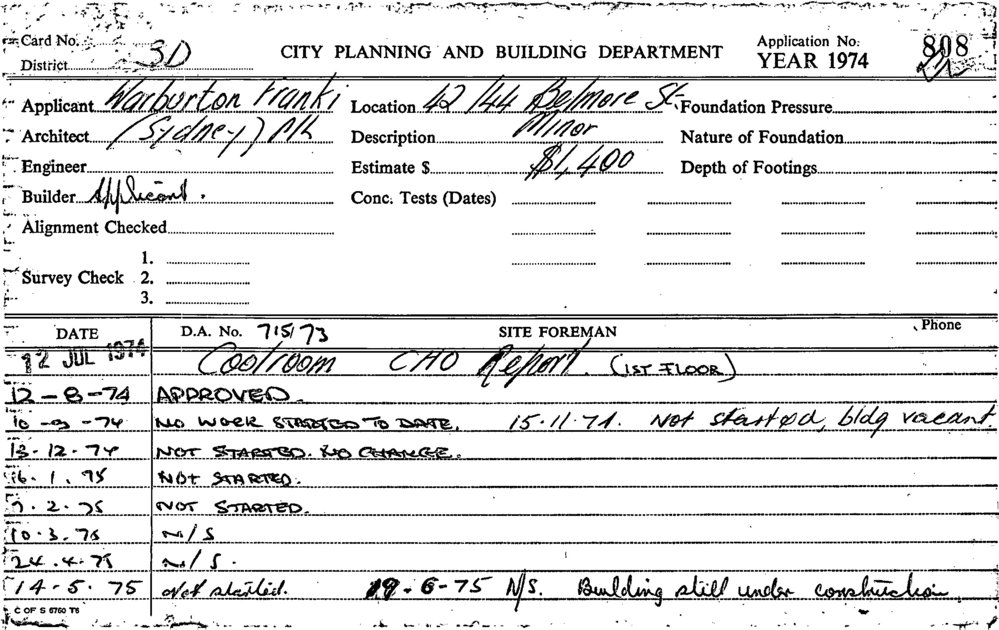 Card No. CITY PLANNING AND BUILDING DEPARTMENT Application No: 808
District 3D YEAR 1974
Applicant Warburton Franki Location 42/44 Belmore St. Foundation Pressure
Architect (Sydney) P/L Description Minor Nature of Foundation
Engineer Estimate $ $1,400 Depth of Footings
Builder Applicant. Conc. Tests (Dates)
Alignment Checked
1.
Survey Check 2.
3.
DATE D.A. No. 715/73 SITE FOREMAN Phone
12 JUL 1974 Coolroom CHO Report. (1ST FLOOR)
12-8-74 APPROVED.
10-9-74 NO WORK STARTED TO DATE. 15.11.74. Not started, bldg vacant.
13.12.74 NOT STARTED. NO CHANGE.
16.1.75 NOT STARTED.
7.2.75 NOT STARTED.
10.3.75 N/S
24.4.75 N/S.
14-5.75 Not started. 19-6-75 N/S. Building still under construction
C OF S 6760 T6